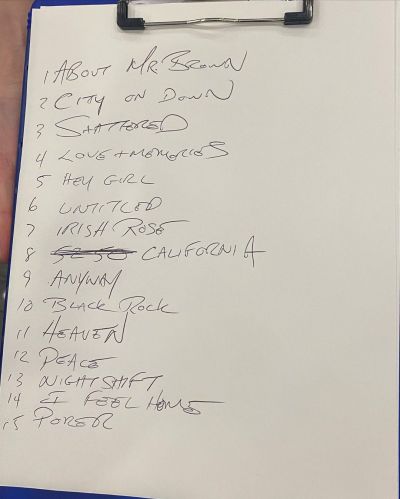 1 ABOUT MR. BROWN
2 CITY ON DOWN
3 SHATTERED
4 LOVE + MEMORIES
5 HEY GIRL
6 UNTITLED
7 IRISH ROSE
8 CALIFORNIA
9 ANYWAY
10 BLACK ROCK
11 HEAVEN
12 PEACE
13 NIGHTSHIFT
14 I FEEL HOME
15 PORER